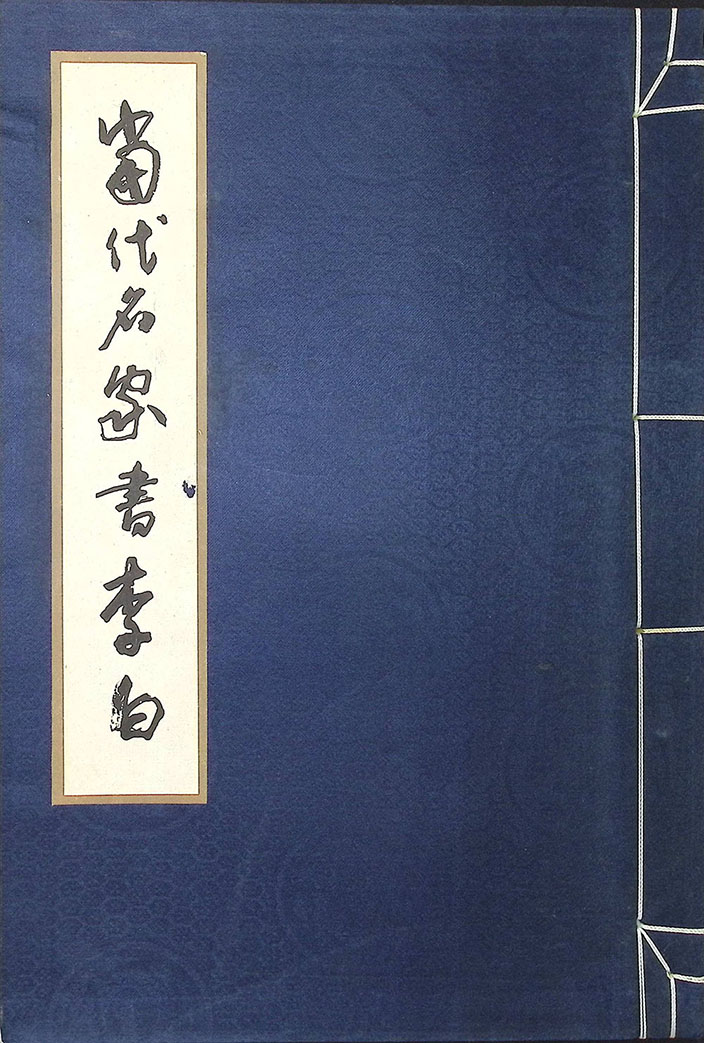 當代名家書李白